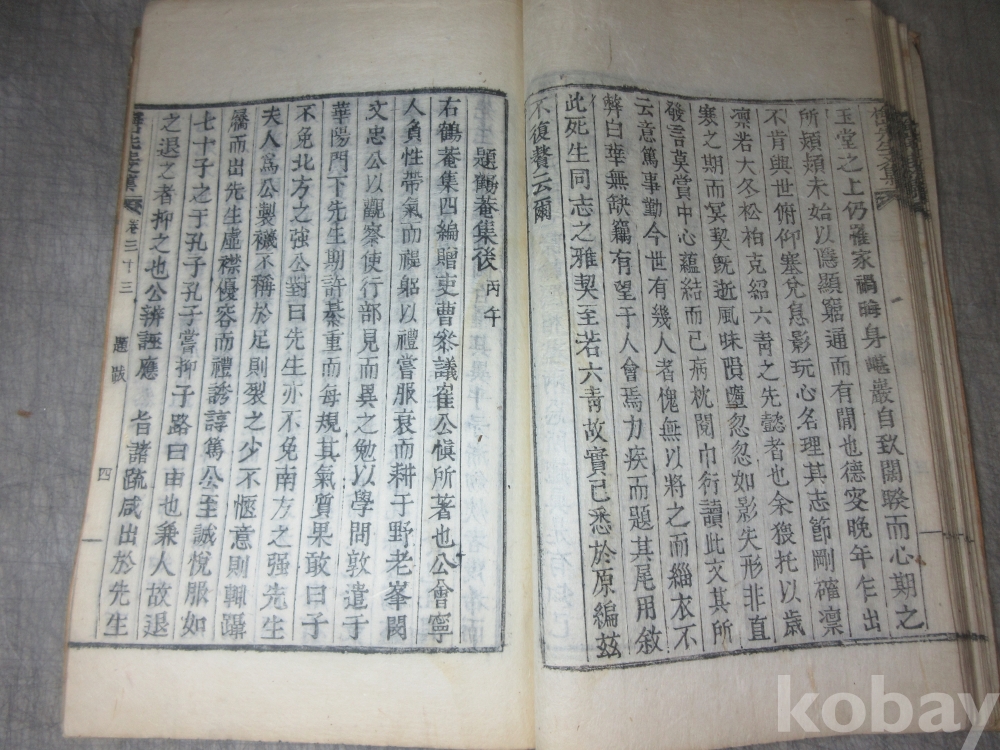 玉堂之上仍罹家禍晦身嵁巖自致闊睽而心期之
所頻頻未始以隱顯窮通而有間也德安晚年乍出
不肯與世俯仰塞兌息影玩心名理其志節剛確凜
凛若大冬松柏克紹六靑之先懿者也余猥托以歲
寒之期而冥契旣逝風味隕墮忽忽如影失形非直
發言莫賞中心蘊結而已病枕閱巾衍讀此文其所
云意篤事勤今世有幾人者愧無以將之而緇衣不
弊白華無缺竊有望于人會焉力疾而題其尾用敘
此死生同志之雅契至若六靑故實已悉於原編玆
不復贅云爾
題鶴菴集後 丙午
右鶴菴集四編贈吏曹參議崔公愼所著也公會寧
人負性帶氣而褆躬以禮嘗服衰而耕于野老峯閔
文忠公以觀察使行部見而異之勉以學問敦遣于
華陽門下先生期許綦重而每規其氣質果敢曰子
不免北方之强公對曰先生亦不免南方之强先生
夫人爲公製襪不稱於足則裂之少不愜意則輒躡
屩而出先生虛襟優容而禮誘諄篤公至誠悅服如
七十子之于孔子孔子嘗抑子路曰由也兼人故退
之退之者抑之也公辨誣應 旨諸疏咸出於先生
卷三十三 題跋 四
kobay